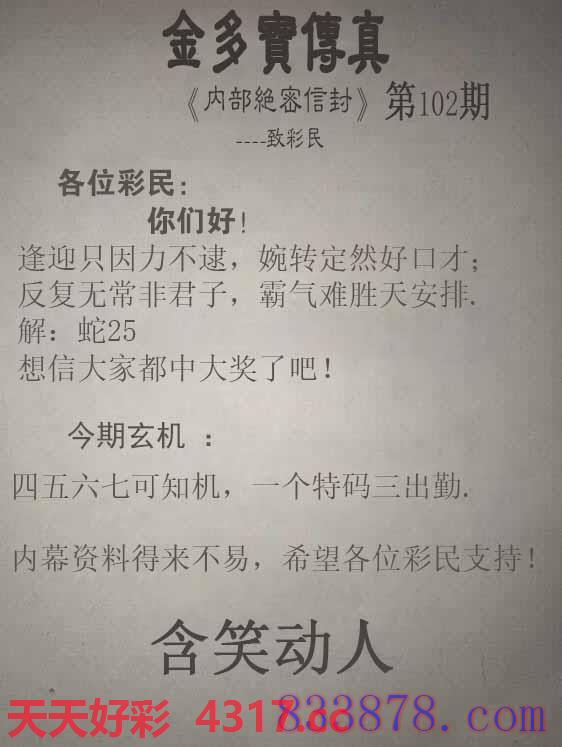 金多寳傳真
《内部絶密信封》第102期
----致彩民
各位彩民:
你们好!
逢迎只因力不逮，婉转定然好口才；
反复无常非君子，霸气难胜天安排.
解：蛇25
想信大家都中大奖了吧！
今期玄机 ：
四五六七可知机，一个特码三出勤.
内幕资料得来不易，希望各位彩民支持！
含笑动人
天天好彩 4317.cc 833878.com